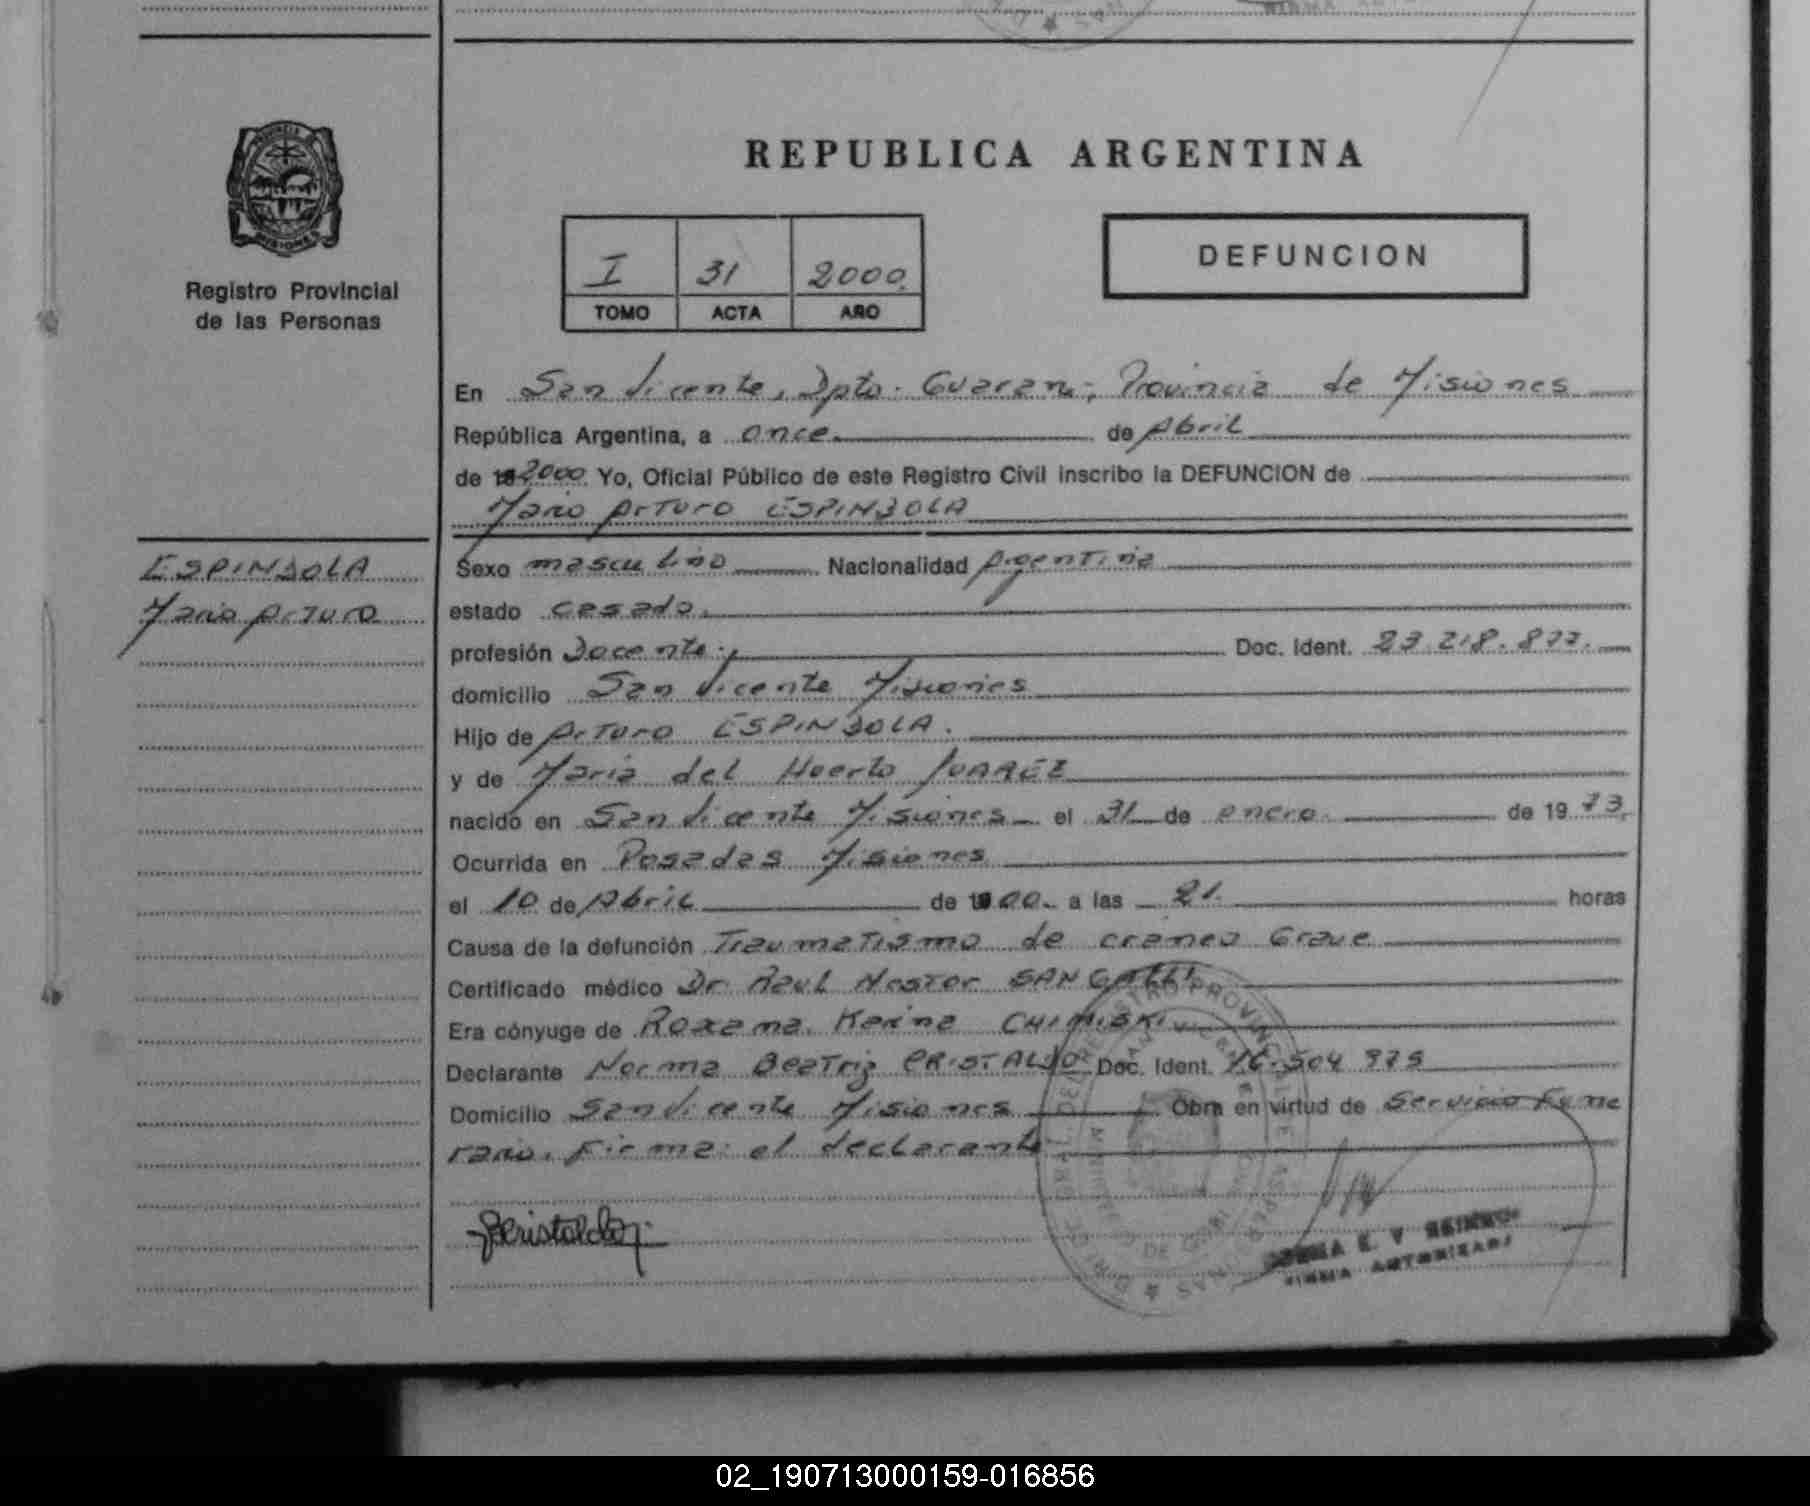 REPUBLICA ARGENTINA
PROVINCIA DE
MISIONES
Registro Provincial
de las Personas
I 31 2000
TOMO ACTA AÑO
DEFUNCION
En San Vicente, Dpto. Guarani, Provincia de Misiones
República Argentina, a once de Abril
de 2000 Yo, Oficial Público de este Registro Civil inscribo la DEFUNCION de
Mario Arturo ESPINDOLA
ESPINDOLA
Mario Arturo
Sexo masculino Nacionalidad Argentina
estado casado.
profesión Docente. Doc. Ident. 23.218.877.
domicilio San Vicente Misiones
Hijo de Arturo ESPINDOLA.
y de Maria del Huerto JUAREZ
nacido en San Vicente Misiones el 31 de enero de 19 73.
Ocurrida en Posadas Misiones
el 10 de Abril de 00 a las 21. horas
Causa de la defunción Traumatismo de craneo Grave
Certificado médico Dr. Raul Nestor SANGALLI
Era cónyuge de Roxana Karina CHIMISKI
Declarante Norma Beatriz CRISTALDO Doc. Ident. 16.504 975
Domicilio San Vicente Misiones Obra en virtud de Servicio Fune
rario. Firma: el declarante
DEL REGISTRO PROVINCIAL DE LAS PERSONAS
SAN VICENTE
Cristaldo
E. V.
FIRMA AUTORIZADA
02_190713000159-016856